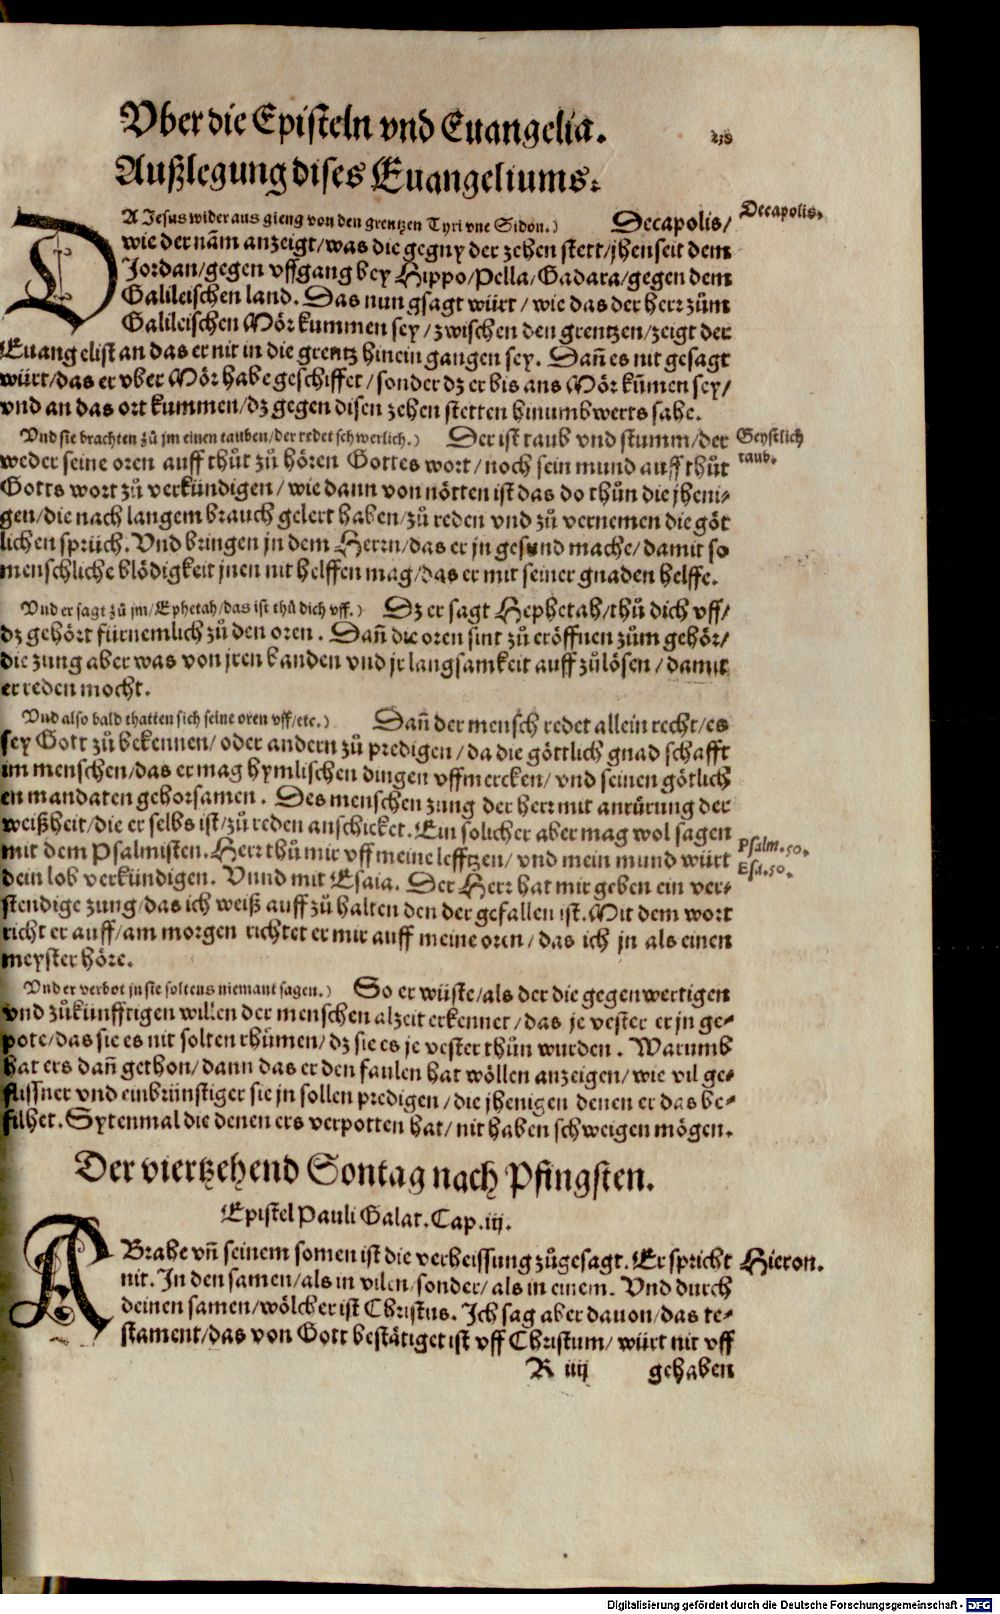 Vber die Episteln vnd Euangelia.
Außlegung dises Euangeliums.
DA Jesus wider aus gieng von den grentzen Tyri vne Sidon.) Decapolis/
Decapolis.
wie der nam̃ anzeigt/was die gegny der zehen stett/jhenseit dem
Jordan/gegen vffgang bey Hippo/Pella/Gadara/gegen dem
Galileischen land. Das nun gsagt würt/ wie das der herr zům
Galileischen Mör kummen sey/zwischen den grentzen/zeigt der
Euangelist an das er nit in die grentz hinein gangen sey. Dañ es nit gesagt
würt/das er vber Mör habe geschiffet/sonder dz er bis ans Mör kūmen sey/
vnd an das ort kummen/dz gegen disen zehen stetten hinumbwerts sahe.
Vnd sie brachten zů jm einen tauben/der redet schwerlich.) Der ist taub vnd stumm/der
Geystlich
taub.
weder seine oren auff thůt zů hören Gottes wort/noch sein mund auff thůt
Gotts wort zů verkündigen/wie dann von nötten ist das do thůn die jheni-
gen/die nach langem brauch gelert haben/zů reden vnd zů vernemen die göt
lichen sprüch. Vnd bringen jn dem Herrn/das er jn gesund mache/damit so
menschliche blödigkeit jnen nit helffen mag/das er mit seiner gnaden helffe.
Vnd er sagt zů jm/Ephetah/das ist thů dich vff.) Dz er sagt Hephetah/thů dich vff/
dz gehört fürnemlich zů den oren. Dañ die oren sint zů eröffnen zům gehör/
die zung aber was von jren banden vnd jr langsamkeit auff zůlösen/damit
er reden mocht.
Vnd also bald thatten sich seine oren vff/etc.) Dañ der mensch redet allein recht/es
sey Gott zů bekennen/oder andern zů predigen/da die göttlich gnad schafft
im menschen/das er mag hymlischen dingen vffmercken/vnd seinen götlich
en mandaten gehorsamen. Des menschen zung der herr mit anrürung der
weißheit/die er selbs ist/zů reden anschicket. Ein solicher aber mag wol sagen
mit dem Psalmisten. Herr thů mir vff meine lefftzen/vnd mein mund würt
Psalm.50.
dein lob verkündigen. Vnnd mit Esaia. Der Herr hat mir geben ein ver-
Esa.50.
stendige zung/das ich weiß auff zů halten den der gefallen ist. Mit dem wort
richt er auff/am morgen richtet er mir auff meine oren/das ich jn als einen
meyster höre.
Vnd er verbot jn sie soltens niemant sagen.) So er wüste/als der die gegenwertigen
vnd zůkünfftigen willen der menschen alzeit erkennet/das je vester er jn ge-
pote/das sie es nit solten rhůmen/dz sie es je vester thůn wurden. Warumb
hat ers dañ gethon/dann das er den faulen hat wöllen anzeigen/wie vil ge-
flissner vnd einbrünstiger sie jn sollen predigen/die jhenigen denen er das be-
filhet. Sytenmal die denen ers verpotten hat/nit haben schweigen mögen.
Der viertzehend Sontag nach Pfingsten.
Epistel Pauli Galat. Cap. iij.
ABrabe vñ seinem somen ist die verheissung zůgesagt. Er spricht
Hieron.
nit. In den samen/als in vilen/sonder/als in einem. Vnd durch
deinen samen/wölcher ist Christus. Ich sag aber dauon/das te-
stament/das von Gott bestätiget ist vff Christum/würt nit vff
R iiij gehaben
Digitalisierung gefördert durch die Deutsche Forschungsgemeinschaft - DFG